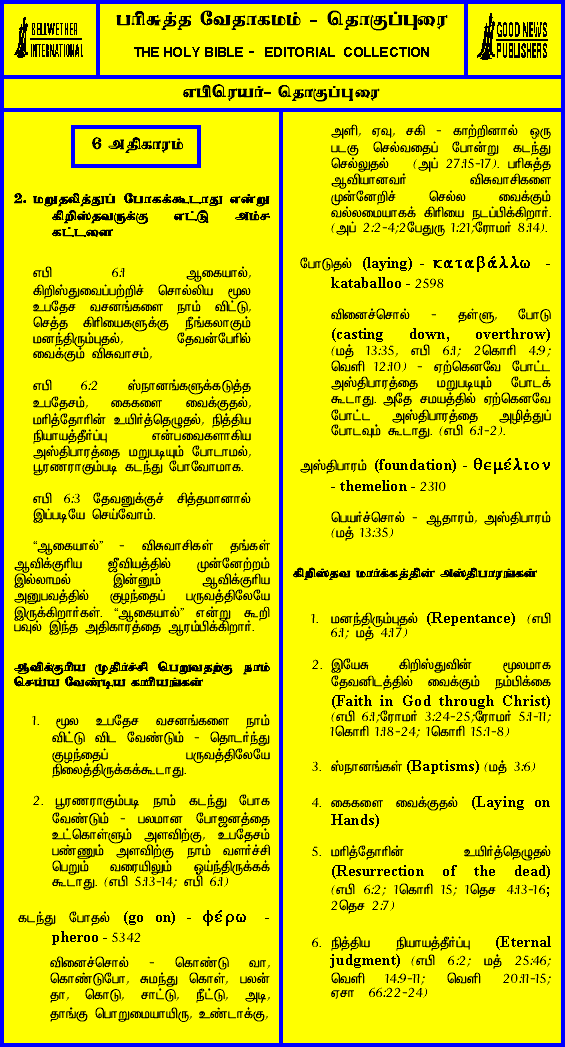 BELLWETHER
INTERNATIONAL
பரிசுத்த வேதாகமம் - தொகுப்புரை
THE HOLY BIBLE - EDITORIAL COLLECTION
GOOD NEWS
PUBLISHERS
எபிரெயர்- தொகுப்புரை
6 அதிகாரம்
2. மறுதலித்துப் போகக்கூடாது என்று
கிறிஸ்தவருக்கு எட்டு அம்ச
கட்டளை
எபி 6:1 ஆகையால்,
கிறிஸ்துவைப்பற்றிச் சொல்லிய மூல
உபதேச வசனங்களை நாம் விட்டு,
செத்த கிரியைகளுக்கு நீங்கலாகும்
மனந்திரும்புதல், தேவன்பேரில்
வைக்கும் விசுவாசம்,
எபி 6:2 ஸ்நானங்களுக்கடுத்த
உபதேசம், கைகளை வைக்குதல்,
மரித்தோரின் உயிர்த்தெழுதல், நித்திய
நியாயத்தீர்ப்பு என்பவைகளாகிய
அஸ்திபாரத்தை மறுபடியும் போடாமல்,
பூரணராகும்படி கடந்து போவோமாக.
எபி 6:3 தேவனுக்குச் சித்தமானால்
இப்படியே செய்வோம்.
“ஆகையால்” - விசுவாசிகள் தங்கள்
ஆவிக்குரிய ஜீவியத்தில் முன்னேற்றம்
இல்லாமல் இன்னும் ஆவிக்குரிய
அனுபவத்தில் குழந்தைப் பருவத்திலேயே
இருக்கிறார்கள். “ஆகையால்” என்று கூறி
பவுல் இந்த அதிகாரத்தை ஆரம்பிக்கிறார்.
ஆவிக்குரிய முதிர்ச்சி பெறுவதற்கு நாம்
செய்ய வேண்டிய காரியங்கள்
1. மூல உபதேச வசனங்களை நாம்
விட்டு விட வேண்டும் - தொடர்ந்து
குழந்தைப் பருவத்திலேயே
நிலைத்திருக்கக்கூடாது.
2. பூரணராகும்படி நாம் கடந்து போக
வேண்டும் - பலமான போஜனத்தை
உட்கொள்ளும் அளவிற்கு, உபதேசம்
பண்ணும் அளவிற்கு நாம் வளர்ச்சி
பெறும் வரையிலும் ஓய்ந்திருக்கக்
கூடாது. (எபி 5:13-14; எபி 6:1)
கடந்து போதல் (go on) - φέρω -
pheroo - 5342
வினைச்சொல் - கொண்டு வா,
கொண்டுபோ, சுமந்து கொள், பலன்
தா, கொடு, சாட்டு, நீட்டு, அடி,
தாங்கு பொறுமையாயிரு, உண்டாக்கு,
அளி, ஏவு, சகி - காற்றினால் ஒரு
படகு செல்வதைப் போன்று கடந்து
செல்லுதல் (அப் 27:15-17). பரிசுத்த
ஆவியானவர் விசுவாசிகளை
முன்னேறிச் செல்ல வைக்கும்
வல்லமையாகக் கிரியை நடப்பிக்கிறார்.
(அப் 2:2-4;2பேதுரு 1:21;ரோமர் 8:14).
போடுதல் (laying) - καταβάλλω -
kataballoo - 2598
வினைச்சொல் - தள்ளு, போடு
(casting down, overthrow)
(மத் 13:35, எபி 6:1; 2கொரி 4:9;
வெளி 12:10) - ஏற்கெனவே போட்ட
அஸ்திபாரத்தை மறுபடியும் போடக்
கூடாது. அதே சமயத்தில் ஏற்கெனவே
போட்ட அஸ்திபாரத்தை அழித்துப்
போடவும் கூடாது. (எபி 6:1-2).
அஸ்திபாரம் (foundation) - θεμέλιον
- themelion - 2310
பெயர்ச்சொல் - ஆதாரம், அஸ்திபாரம்
(மத் 13:35)
கிறிஸ்தவ மார்க்கத்தின் அஸ்திபாரங்கள்
1. மனந்திரும்புதல் (Repentance) (எபி
6:1; மத் 4:17)
2. இயேசு கிறிஸ்துவின் மூலமாக
தேவனிடத்தில் வைக்கும் நம்பிக்கை
(Faith in God through Christ)
(எபி 6:1;ரோமர் 3:24-25;ரோமர் 5:1-11;
1கொரி 1:18-24; 1கொரி 15:1-8)
3. ஸ்நானங்கள் (Baptisms) (மத் 3:6)
4. கைகளை வைக்குதல் (Laying on
Hands)
5. மரித்தோரின் உயிர்த்தெழுதல்
(Resurrection of the dead)
(எபி 6:2; 1கொரி 15; 1தெச 4:13-16;
2தெச 2:7)
6. நித்திய நியாயத்தீர்ப்பு (Eternal
judgment) (எபி 6:2; மத் 25:46;
வெளி 14:9-11; வெளி 20:11-15;
ஏசா 66:22-24)